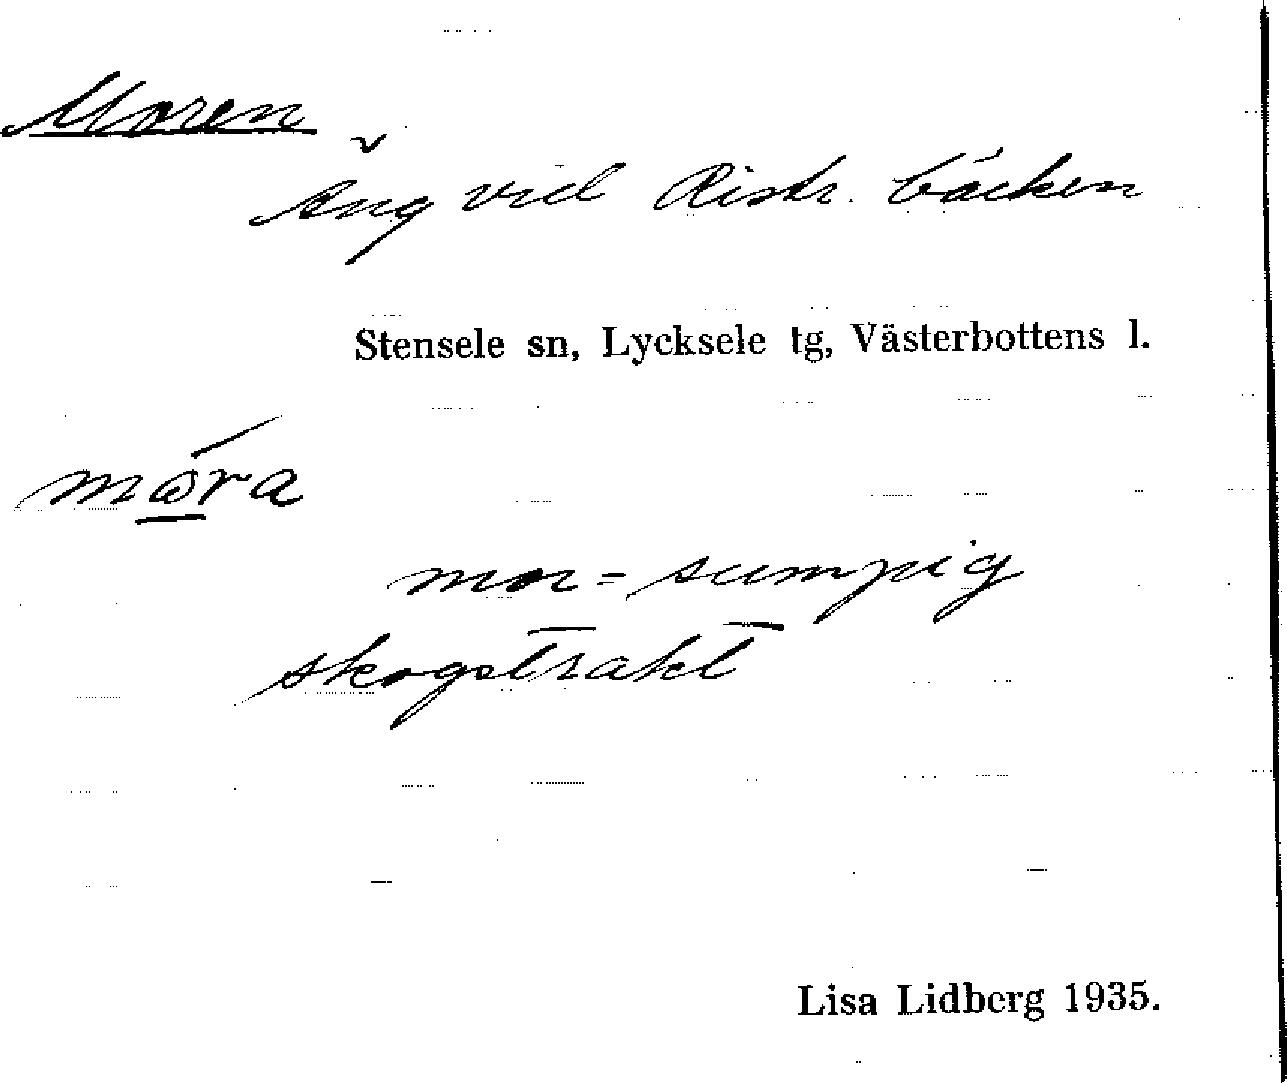 Moren
Äng vid Ristr. bäcken
Stensele sn, Lycksele tg, Västerbottens l.
mor = sumpig
skogstrakt
Lisa Lidberg 1935.